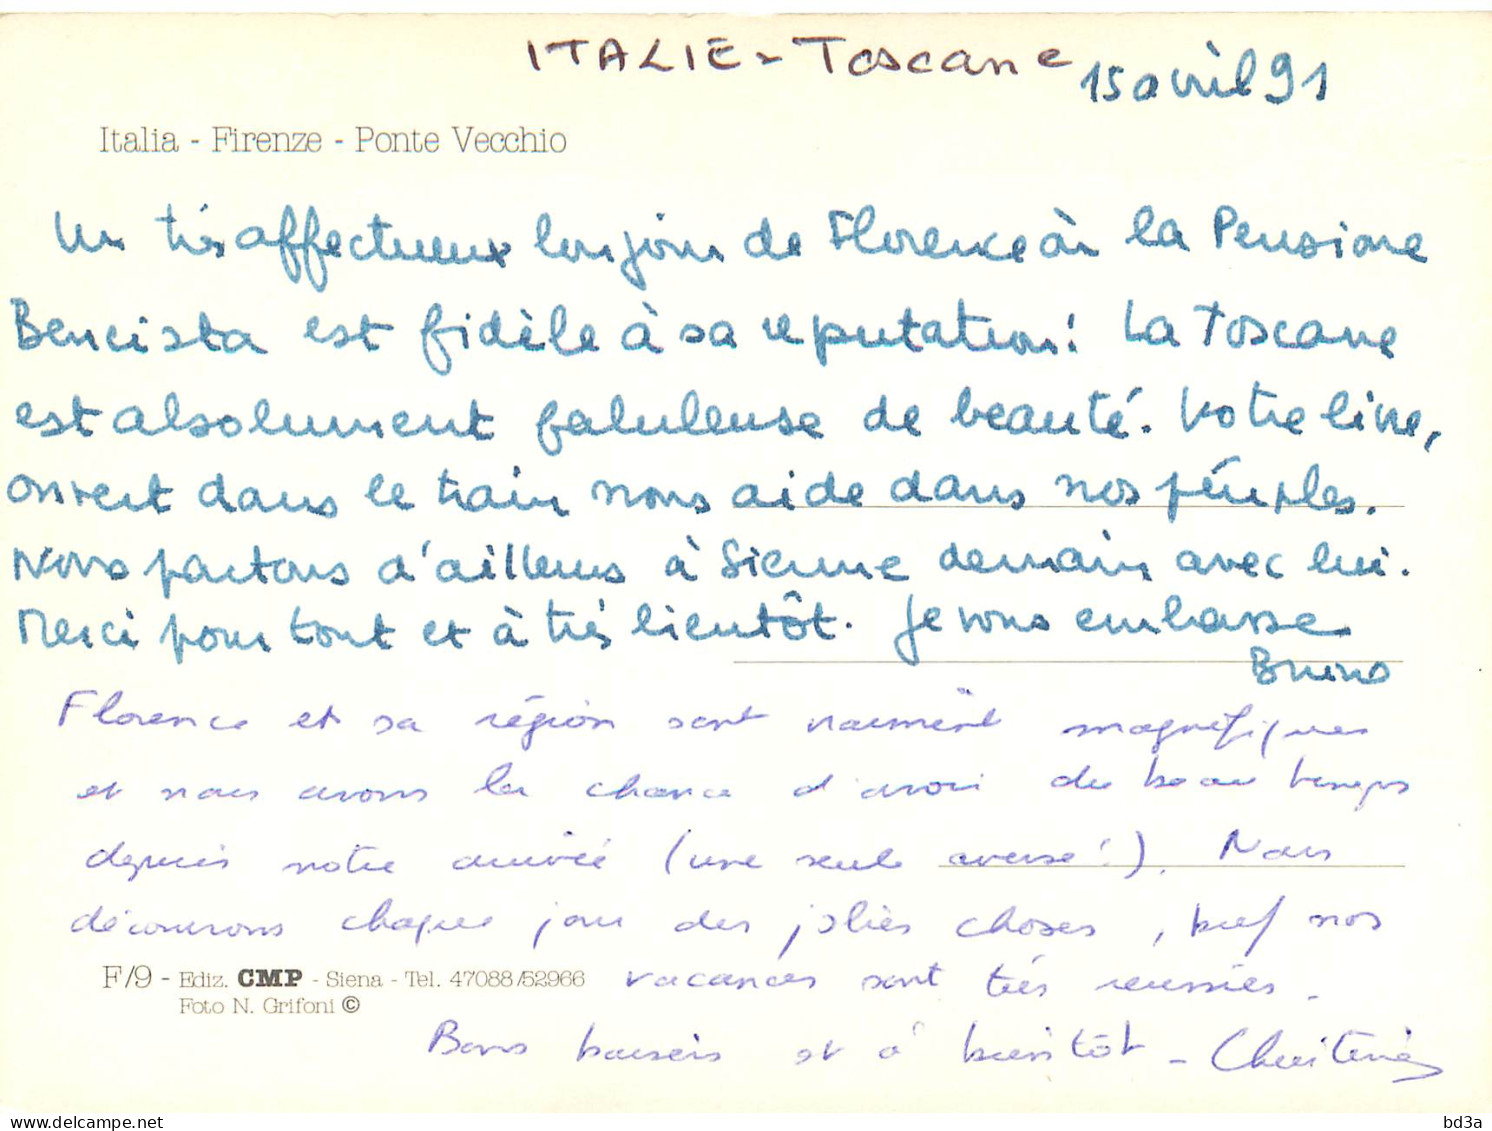 ITALIE - Toscane
15 avril 91
Italia - Firenze - Ponte Vecchio
Un très affectueux bonjour de Florence où la Pensione
Bencista est fidèle à sa reputation! La Toscane
est absolument fabuleuse de beauté. Votre livre,
ouvert dans le train nous aide dans nos périples.
Nous partons d'ailleurs à Sienne demain avec lui.
Merci pour tout et à très bientôt. Je vous embrasse
Bruno
Florence et sa région sont vraiment magnifiques
et nous avons la chance d'avoir du beau temps
depuis notre arrivée (une seule averse!). Nous
découvrons chaque jour des jolies choses, bref nos
vacances sont très réussies.
F/9 - Ediz. CMP - Siena - Tel. 47088/52966
Foto N. Grifoni ©
Bons baisers et à bientôt - Christine
bd3a